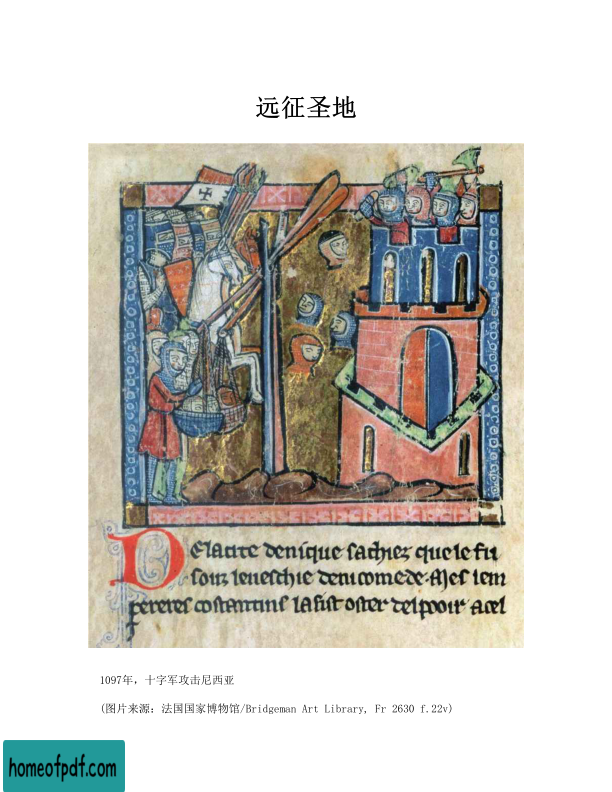 远征圣地
De la cite de nique sachiez que le fu
souz leueschie de nicomede. Mes lem
pereres costantins la fist oster del pooir a cel
1097年，十字军攻击尼西亚
(图片来源：法国国家博物馆/Bridgeman Art Library, Fr 2630 f.22v)
homeofpdf.com